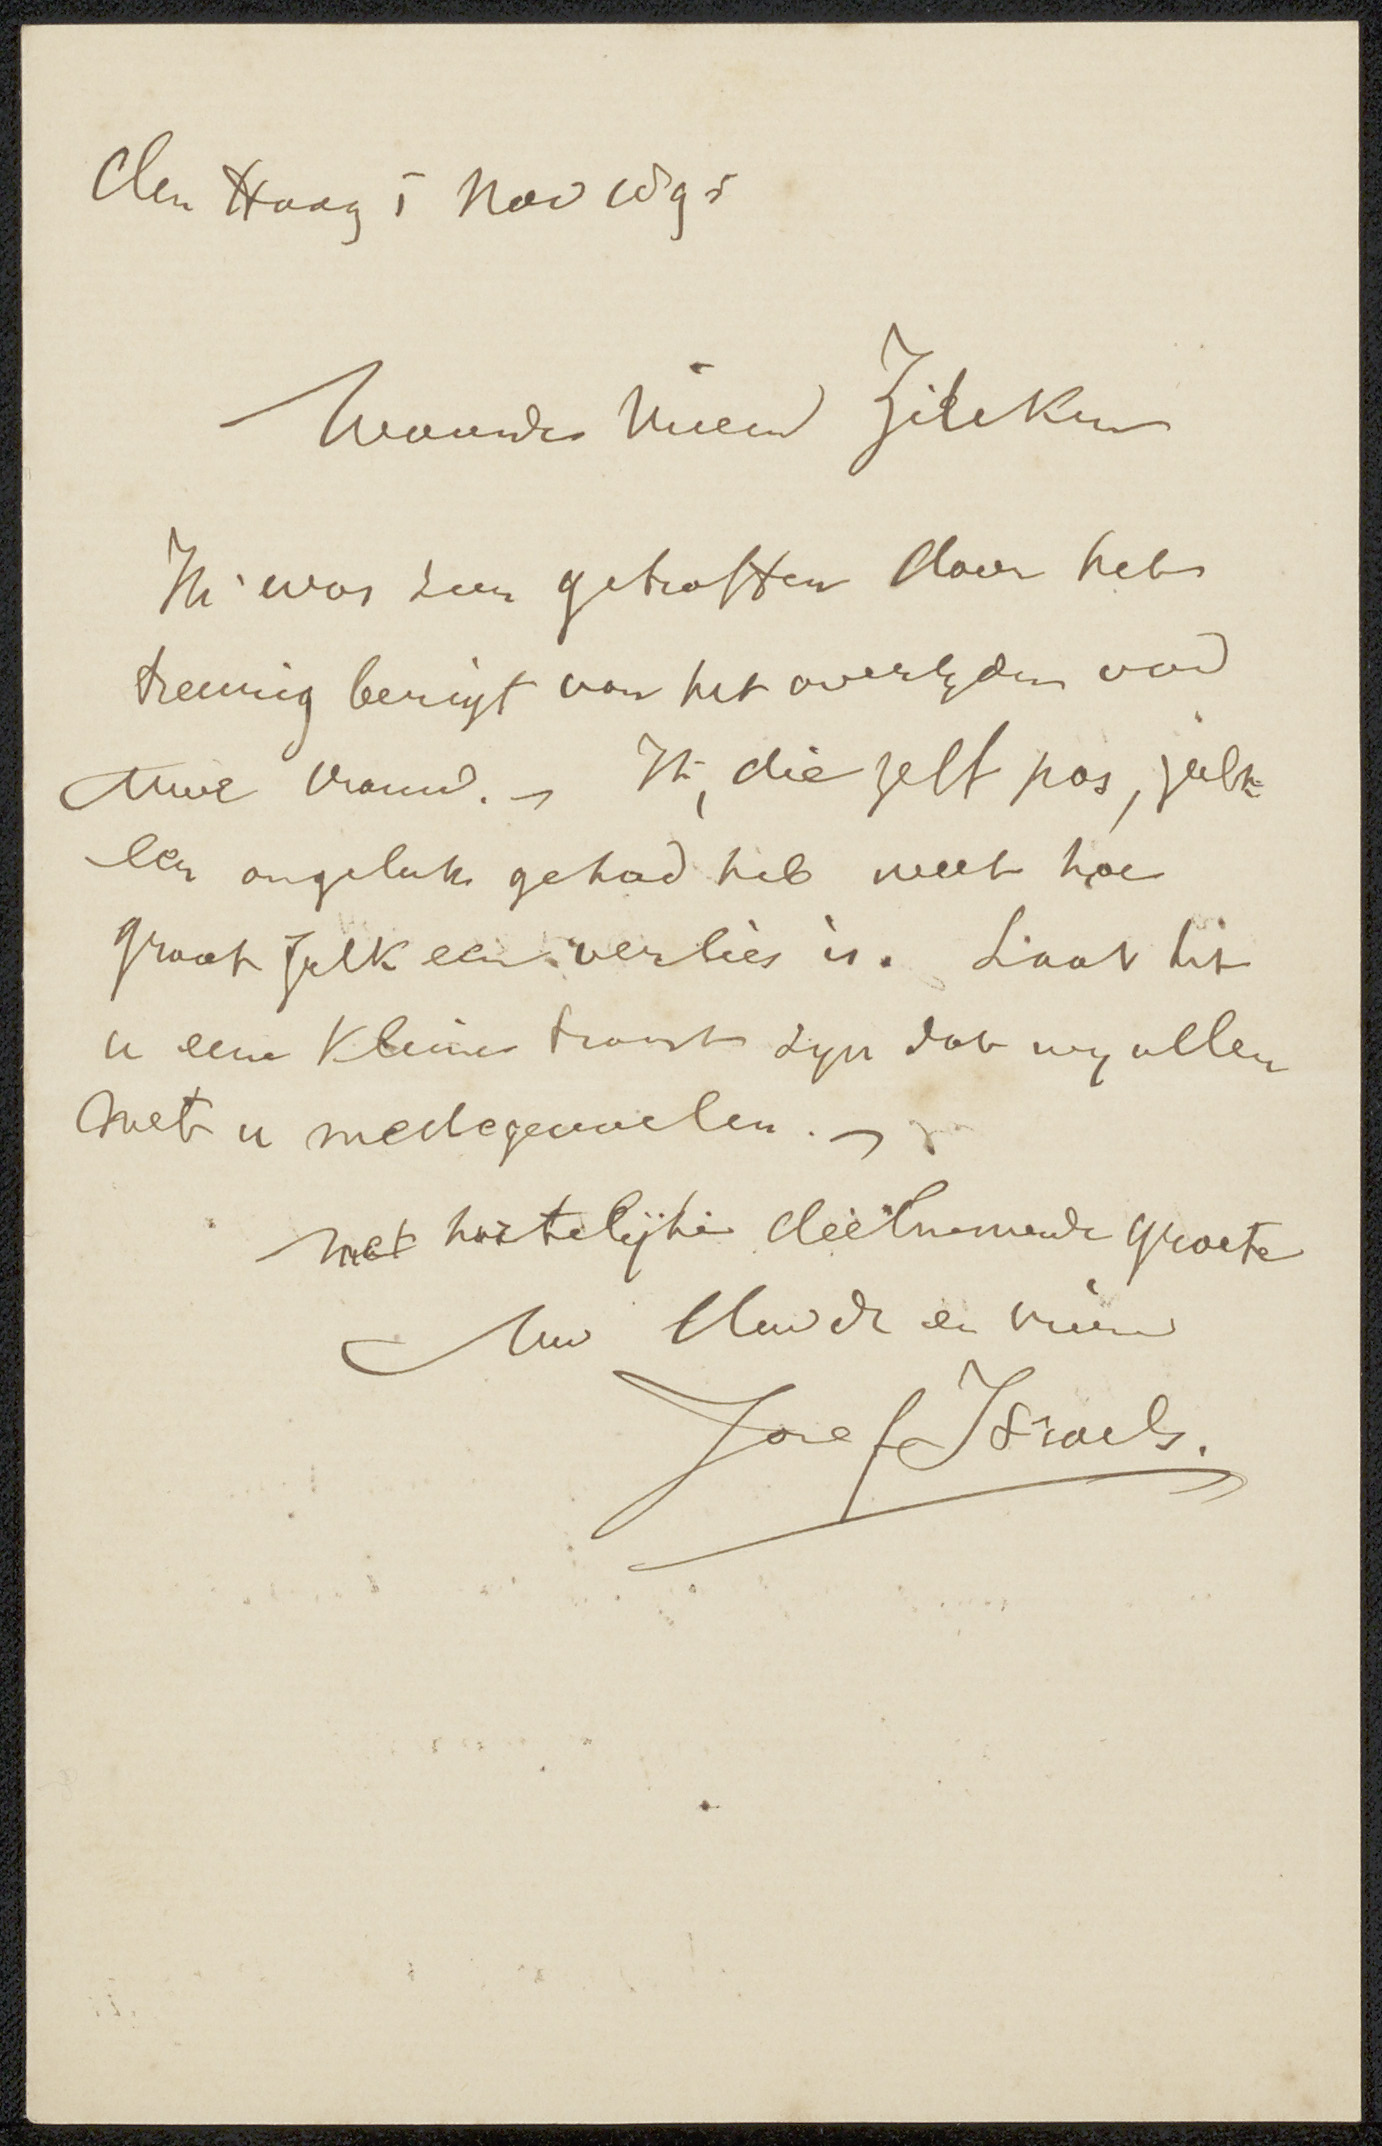 den Haag 5 Nov 1895
Waarde Vriend Zilcken
Ik was zeer getroffen door het
treurig berigt van het overlyden van
Uwe vrouw. — Ik, die zelf pas, zulk
een ongeluk gehad heb weet hoe
groot zulk een verlies is. Laat het
u eene kleine troost zyn dat wy allen
met u medegevoelen. —
met hartelijke deelnemende groete
Uw oude en vriend
Jozef Israels.